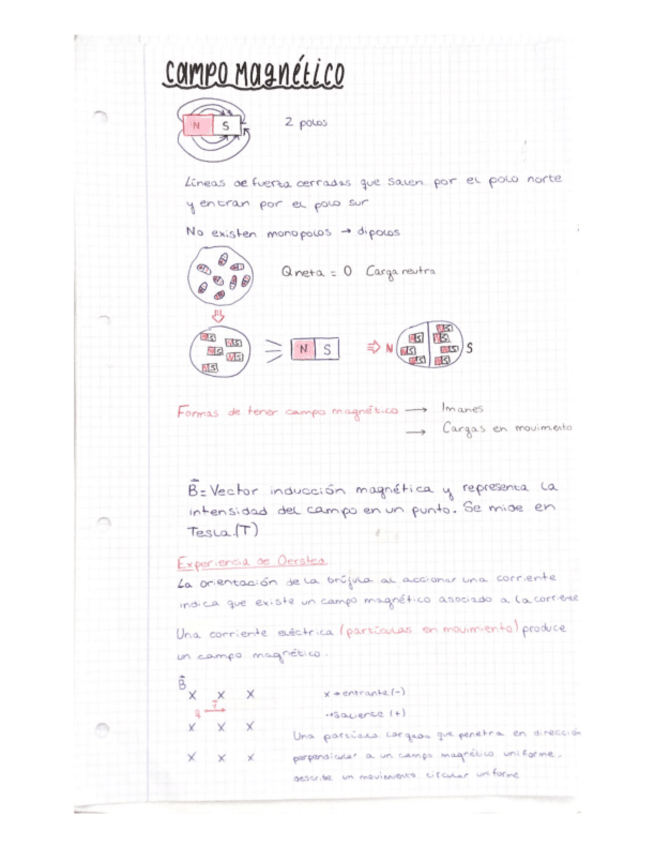 Campo Magnético
N S
2 polos
Líneas de fuerza cerradas que salen por el polo norte
y entran por el polo sur
No existen monopolos → dipolos
Qneta = 0 Carga neutra
N S
N S
Formas de tener campo magnético → Imanes
→ Cargas en movimiento
B = Vector inducción magnética y representa la
intensidad del campo en un punto. Se mide en
Tesla.(T)
Experiencia de Oersted
La orientación de la brújula al accionar una corriente
indica que existe un campo magnético asociado a la corriente
Una corriente eléctrica (partículas en movimiento) produce
un campo magnético.
B
x x x
x → entrante (-)
q v
· → saliente (+)
x x x
Una partícula cargada que penetra en dirección
x x x
perpendicular a un campo magnético uniforme,
describe un movimiento circular uniforme